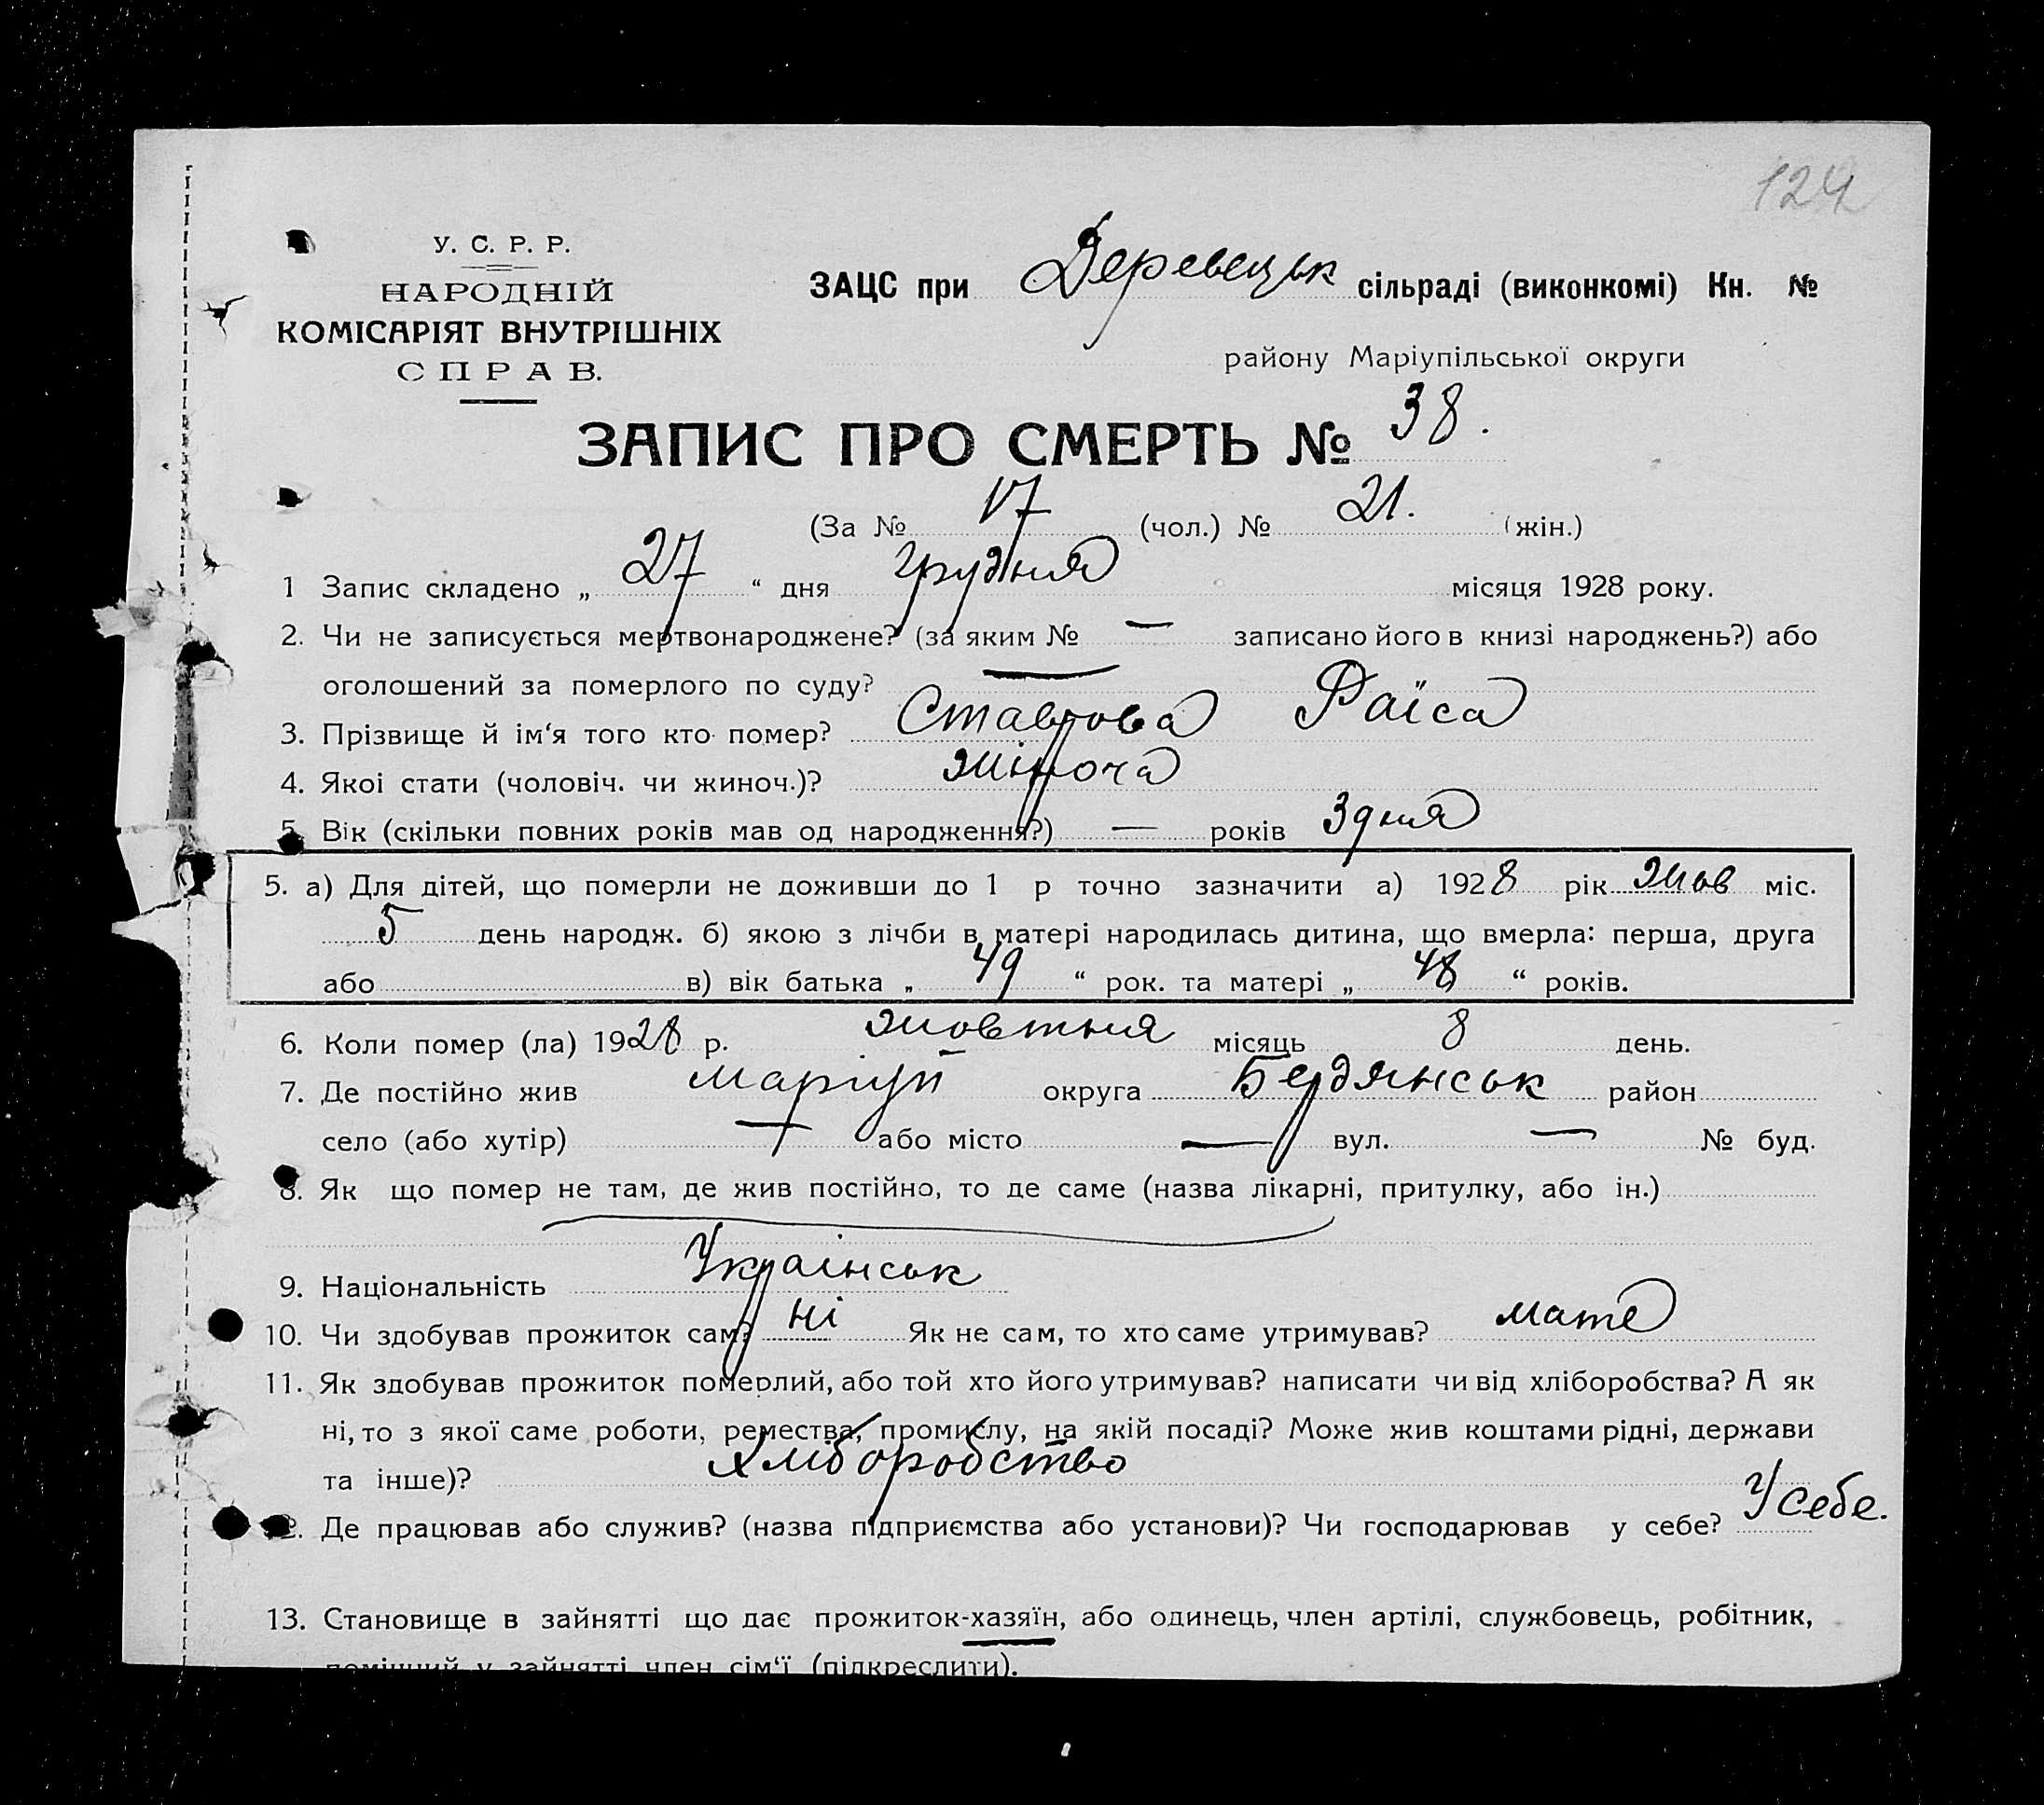 124
У. С. Р. Р.
НАРОДНІЙ
КОМІСАРІЯТ ВНУТРІШНІХ
СПРАВ.
ЗАЦС при Деревецьк сільраді (виконкомі) Кн. №
району Маріупільської округи
ЗАПИС ПРО СМЕРТЬ № 38.
(За № 17 (чол.) № 21. (жін.)
1 Запис складено „ 27 “ дня грудня місяця 1928 року.
2. Чи не записується мертвонароджене? (за яким № — записано його в книзі народжень?) або
оголошений за померлого по суду? —
3. Прізвище й ім‘я того кто помер? Ставрова Раїса
4. Якоі стати (чоловіч. чи жиноч.)? жіноча
5. Вік (скільки повних років мав од народження?) — років 3 дня
5. а) Для дітей, що померли не доживши до 1 р точно зазначити а) 1928 рік жов міс.
5 день народж. б) якою з лічби в матері народилась дитина, що вмерла: перша, друга
або в) вік батька „ 49 “ рок. та матері „ 48 “ років.
6. Коли помер (ла) 1928 р. жовтня місяць 8 день.
7. Де постійно жив Маріуп округа Бердянськ район
село (або хутір) — або місто — вул. — № буд.
8. Як що помер не там, де жив постійно, то де саме (назва лікарні, притулку, або ін.)
9. Національність Українськ
10. Чи здобував прожиток сам? ні Як не сам, то хто саме утримував? мате
11. Як здобував прожиток померлий, або той хто його утримував? написати чи від хліборобства? А як
ні, то з якої саме роботи, ремества, промислу, на якій посаді? Може жив коштами рідні, держави
та інше)? хліборобство
12. Де працював або служив? (назва підприємства або установи)? Чи господарював у себе? У себе.
13. Становище в зайнятті що дає прожиток-хазяїн, або одинець, член артілі, службовець, робітник,
помічний у зайнятті член сім‘ї (підкреслити).